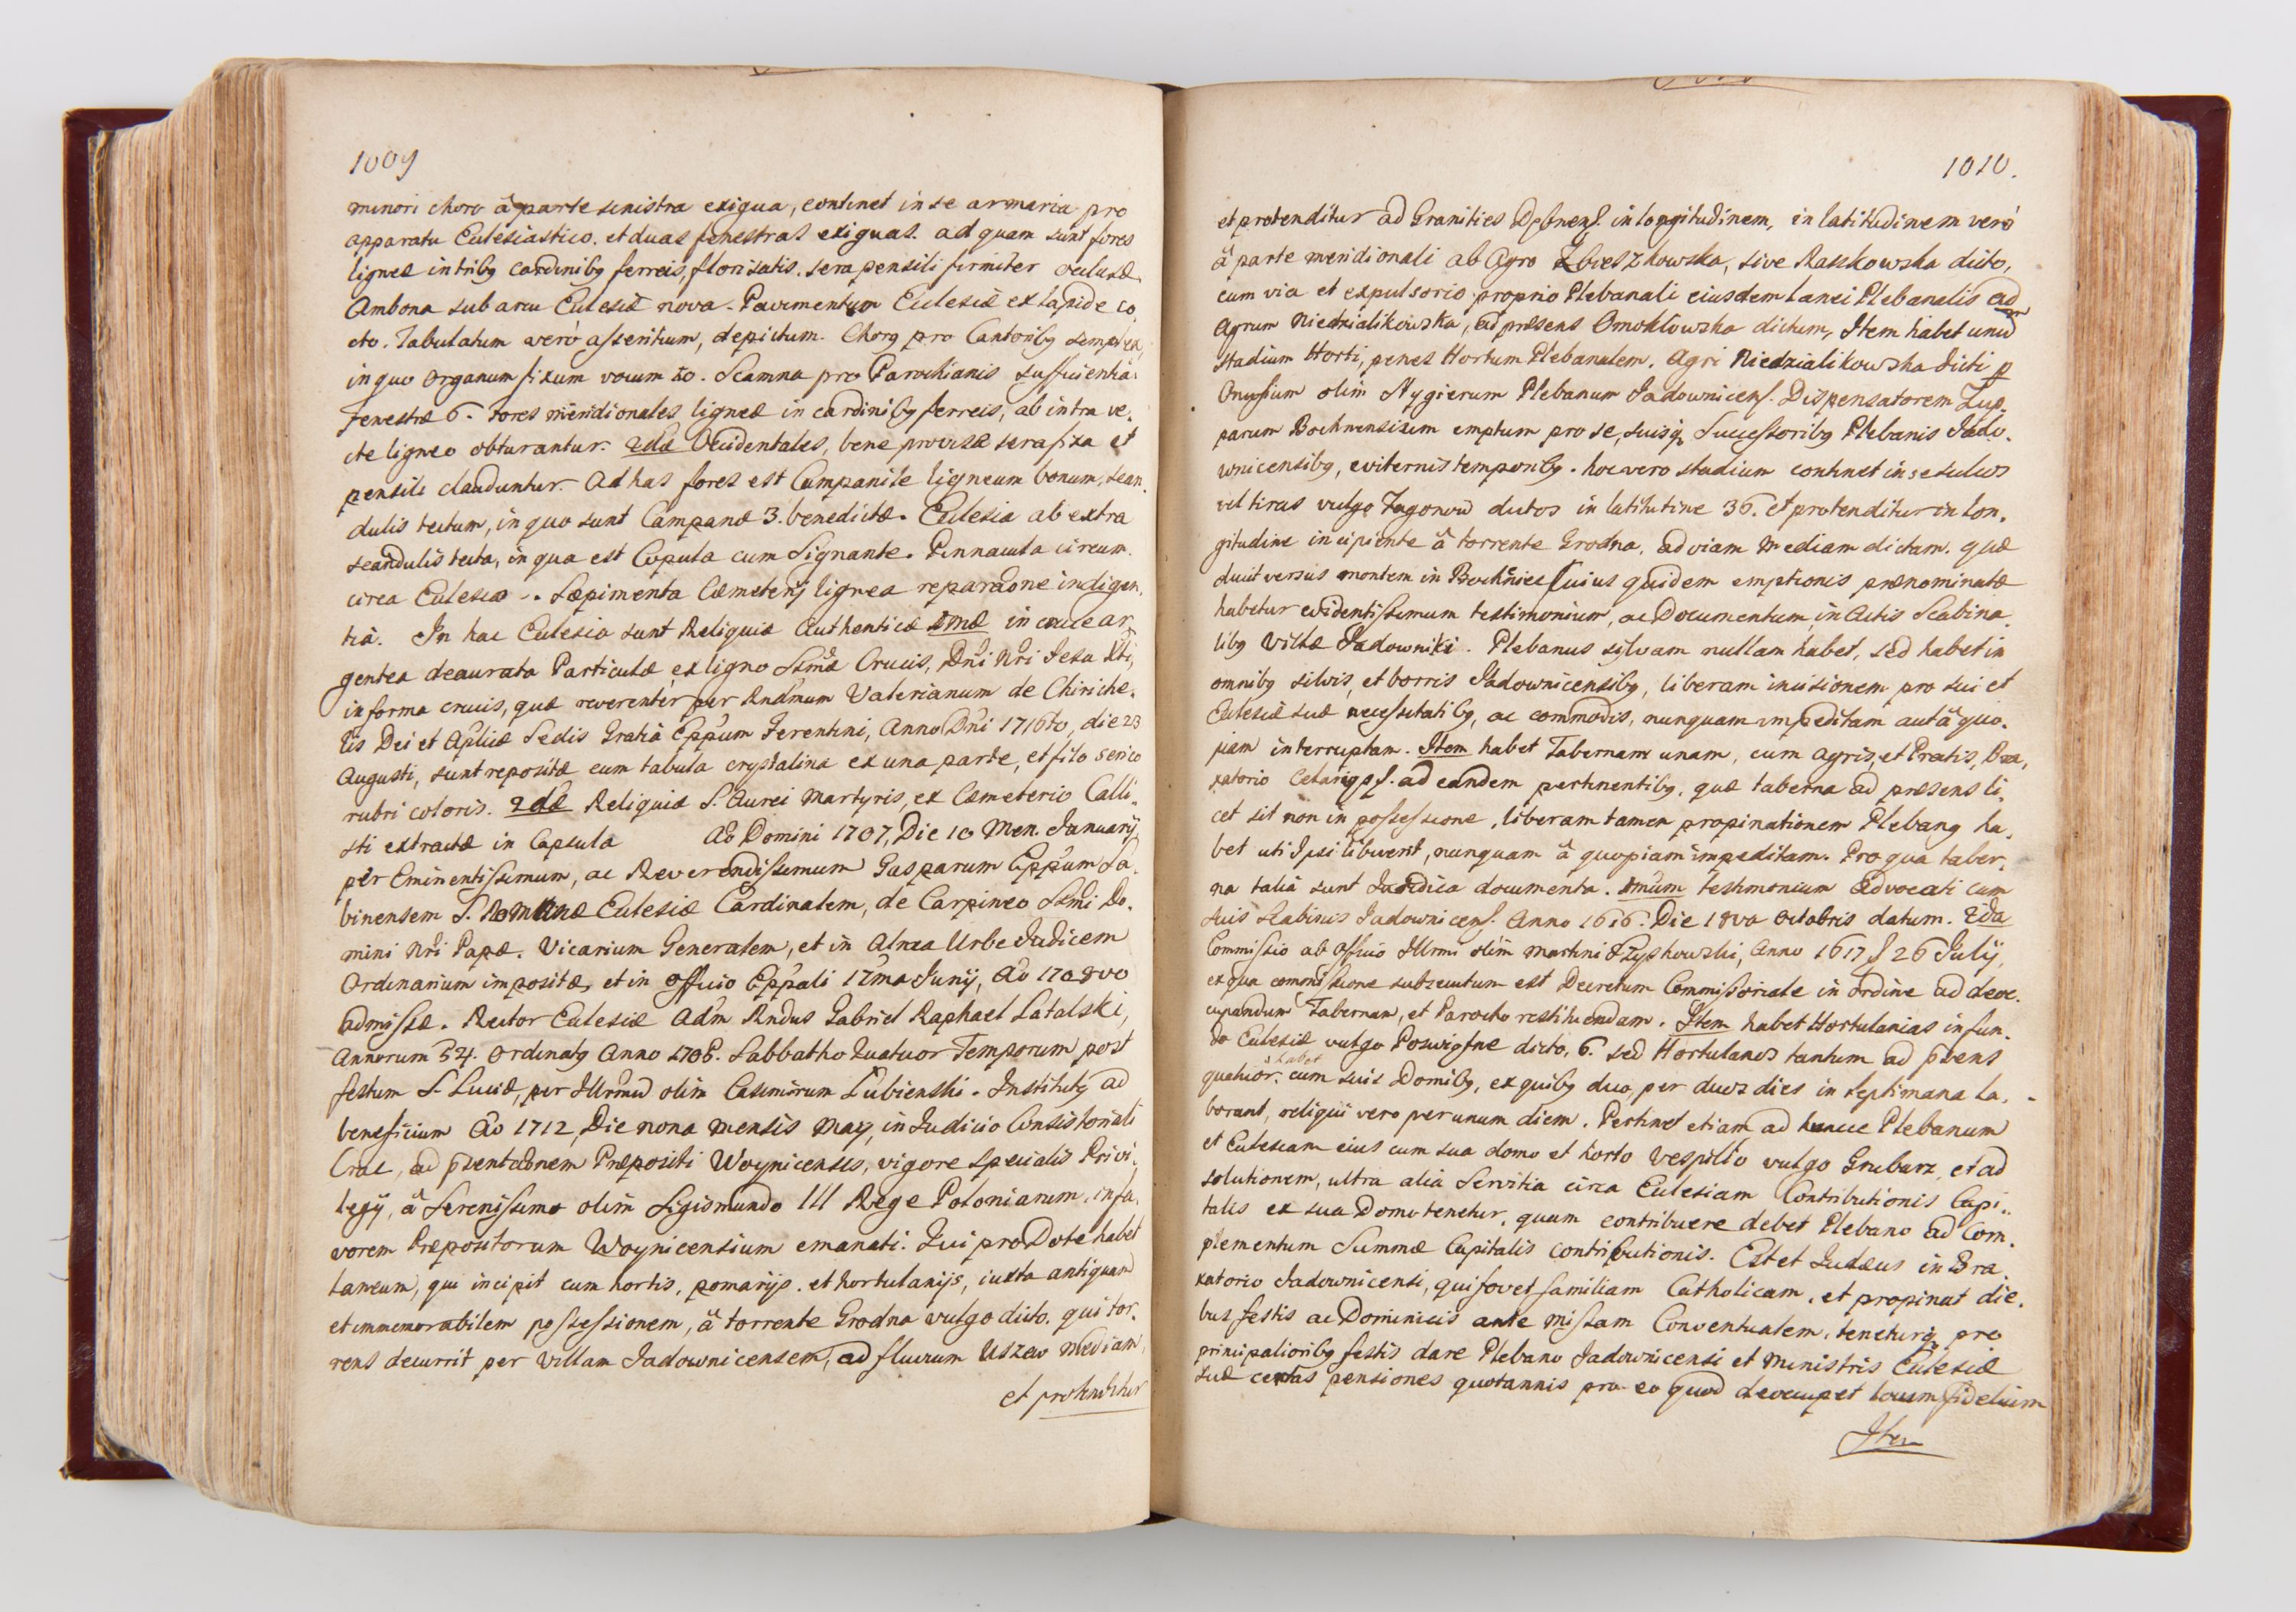 1009
minori choro à parte sinistra exigua, continet in se armaria pro
apparatu Eclesiastico. et duas fenestras exiguas. ad quam sunt fores
ligneæ in tribg cardinibg ferreis, florisatis. sera pensili firmiter oclusæ
Ambona sub arcu Eclesiæ nova. Pavimentum Eclesiæ ex lapide co,
cto. Tabulatum verò asseritium, depictum. Chorg pro Cantoribg simplex,
in quo organum fixum vocum to. Scamna pro Parochianis sufficientia.
fenestræ 6. fores meridionales ligneæ in cardinibg ferreis, ab intra ve,
cte ligneo obturantur. 2dæ Occidentales, bene provisæ sera fixa et
pensili clauduntur. Ad has fores est Campanile ligneum bonum, scan,
dulis tectum, in quo sunt Campanæ 3. benedictæ. Eclesia ab extra
scandulis tecta, in qua est Cupula cum Signante. Pinnacula circum
circa Eclesiæ. Sæpimenta Cæmeterij lignea reparaone indigen,
tia. In hac Eclesia sunt Reliquiæ Authenticæ 1mæ in cruce ar,
gentea deaurata Particulæ ex ligno Ssmæ Crucis, Dni Nri Jesu Xti,
in forma crucis, quæ reverenter per Rndmum Valerianum de Chiriche,
lis Dei et Aplicæ Sedis Gratiâ Eppum Ferentini, Anno Dni 1716to, die 23
Augusti, sunt repositæ cum tabula crystalina ex una parte, et filo serico
rubri coloris. 2dæ Reliquiæ S. Aurei Martyris, ex Cæmeterio Calli,
sti extractæ in Capsula Ao Domini 1707, Die 10 Men. Januarij
per Eminentissimum, ac Reverendissimum Gasparum Eppum Sa,
binensem S. Romanæ Eclesiæ Cardinalem, de Carpineo Ssmi Do,
mini Nri Papæ. Vicarium Generalem, et in Alma Urbe Judicem
Ordinarium impositæ, et in officio Eppali 12ma Junij, Ao 1708vo
admissæ. Rector Eclesiæ Adm Rndus Gabriel Raphael Latalski,
Annorum 34. ordinatg Anno 1706. Sabbatho Quatuor Temporum post
festum S. Luciæ, per Illrmum olim Casimirum Łubienski. Institutg ad
beneficium Ao 1712, Die nona mensis May, in Judicio Consistoriali
Crac, ad pntaonem Præpositi Woynicensis, vigore specialis Privi,
legij, â Serenissimo olim Sigismundo III Rege Poloniarum. in fa,
vorem Præpositorum Woynicensium emanati. Qui pro Dote habet
laneum, qui incipit cum hortis, pomarijs. et hortulanijs, iuxta antiquam
et immemorabilem possessionem, â torrente Grodna vulgo dicto. qui tor,
rens decurrit per Villam Jadownicensem, ad fluvium Uszew mediam,
et protenditur
1010.
et protenditur ad Granities in longitudinem, in latitudinem verò
â parte meridionali ab Agro Zbieszkowska, sive Raszkowska dicto,
cum via et expulsorio proprio Plebanali eiusdem lanei Plebanalis ad
Agrum Niedzialikowska, ad præsens Omoklowska dictum, Item habet unum
stadium Horti, penes Hortum Plebanalem. Agri Niedzialikowska dicti p
olim Nygierum Plebanum Jadownicens. Dispensatorem Zup,
parum Bochnensium emptum pro se, suisq Successoribg Plebanis Jado,
wnicensibg, eviternis temporibg. hoc vero stadium continet in se sulcos
vel liras vulgo Zagonow dictos in latitutine 36. et protenditur in lon,
gitudine incipiente â torrente Grodna. ad viam Mediam dictam. quæ
ducit versus montem in Bochniec cuius quidem emptionis prænominatæ
habetur evidentissimum testimonium, ac Documentum in Actis Scabina,
libg Villæ Jadowniki. Plebanus sylvam nullam habet, sed habet in
omnibg silvis, et borris Jadownicensibg, liberam incisionem pro sui et
Eclesiæ suæ necessitatibg, ac commodis, nunquam impeditam aut â quo,
piam interruptam. Item habet Tabernam unam, cum agris, et Pratis, Bra,
xatorio ad eandem pertinentibg. quæ taberna ad præsens li,
cet sit non in possessione, liberam tamen propinationem Plebang ha,
bet uti Ipsi libuerit, nunquam â quopiam impeditam. Pro qua taber,
na talia sunt Juridica documenta. 1mum testimonium Advocati cum
suis Scabinis Jadownicens. Anno 1616. Die 18va Octobris datum. 2da
Commissio ab Officio Illrmi olim Martini Szyszkowski, Anno 1617 26 Julij,
ex qua commissione subsecutum est Decretum Commissoriale in ordine ad deoc,
cupandum Tabernam, et Parocho restituendam. Item habet Hortulanias in fun,
do Eclesiæ vulgo Poswiętne dicto, 6. sed Hortulanos tantum ad pñens
habet
quatuor. cum suis Domibg, ex quibg duo, per duos dies in septimana la,
borant, reliqui vero per unum diem. Pertinet etiam ad hunce Plebanum
et Eclesiam eius cum sua domo et horto Vespillo vulgo Grubarz, et ad
solutionem, ultra alia servitia circa Eclesiam Contributionis Capi,
talis ex sua Domo tenetur, quam contribuere debet Plebano ad Com,
plementum Summæ Capitalis contributionis. Est et Judæus in Bra,
xatorio Jadownicensi, qui fovet familiam Catholicam, et propinat die,
bus festis ac Dominicis ante missam Conventualem, teneturq pro
principalioribg festis dare Plebano Jadownicensi et Ministris Eclesiæ
suæ certas pensiones quotannis pro eo quod deoccupet locum fidelium
Item